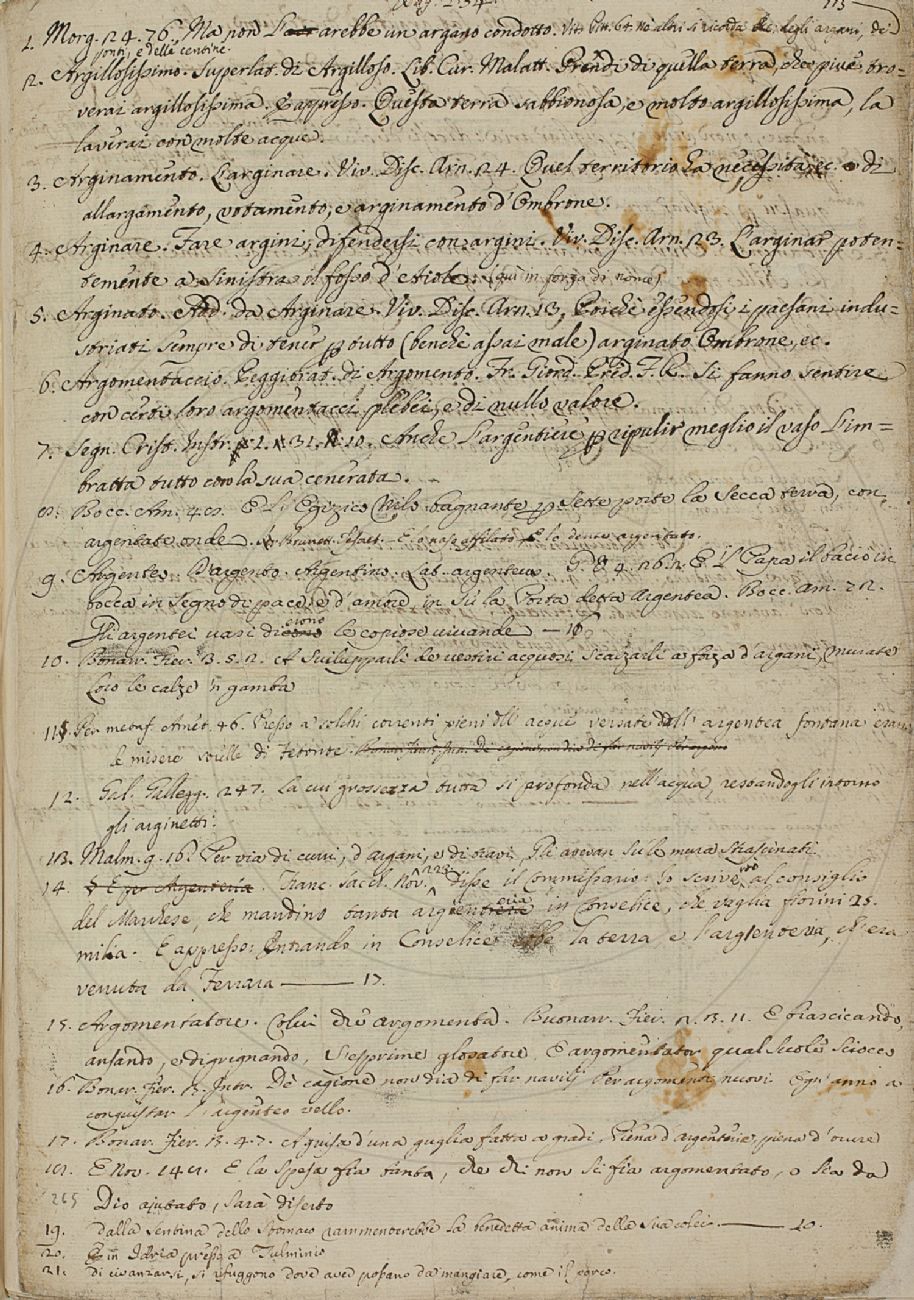 Pag. 234. 113
1. Morg. 24. 76. Ma non l'arebbe un argano condotto. Viv. Pitt. 64. Nè altri si ricorda che degli argani, de'
ponti, e delle centine.
2. Argillosissimo. Superlat. di Argilloso. Lib. Cur. Malatt. Prendi di quella terra, che più tro=
verai argillosissima. E appresso. Questa terra sabbionosa, e molto argillosissima, la
laverai con molte acque.
3. Arginamento. L'arginare. Viv. Disc. Arn. 24. Quel territorio ha necessità, ec. e di
allargamento, votamento, e arginamento d'Ombrone.
4. Arginare. Fare argini, difendersi con argini. Viv. Disc. Arn. 23. L'arginar poten=
temente a sinistra il fosso d' (qui in forza di nome)
5. Arginato. Add. da Arginare. Viv. Disc. Arn. 13. Poichè essendosi i paesani indu=
striati sempre di tener p tutto (benchè assai male) arginato Ombrone, ec.
6. Argomentaccio. Peggiorat. di Argomento. Fr. Giord. Pred. R. Si fanno sentire
con certi loro argomentacci plebei, e di nullo valore.
7. Segn. Crist. Instr. 1. 31. 10. Anche l'argentiere p ripulir meglio il vaso l'im=
bratta tutto con la sua cenerata.
8. Bocc. Am. 48. E l'Egizico Nilo bagnante p sette porte la secca terra, con
argentate onde. Brunett. Tesoret. E lo naso affilato E lo dente argentato.
9. Argenteo. D'argento. Argentino. Lat. argenteus. G. V. 4. 26. 2. E il Papa il baciò in
bocca in segno di pace, e d'amore in su la Porta detta Argentea. Bocc. Am. 72.
Gli argentei vasi dierono le copiose vivande — 16
10. Bonar. Fier. 3. 5. 2. A svilupparli de vestiri acquosi, scalzarli a forza d'argani, murate
Loro le calze 'n gamba
11. Per metaf. Amet. 46. Presso a solchi correnti pieni dell' acque versate dall' argentea fontana erano
le misere sorelle di Fetonte.
12. Gal. Gallegg. 247. La cui grossezza tutta si profonda nell'acqua, restandogli intorno
gli arginetti.
13. Malm. 9. 16. Per via di curri, d'argani, e di travi, Gli avevan sulle mura strascinati
14. Franc. Sacch. Nov. 223. Disse il Commissario: Io scriverrò al consiglio
del Marchese, che mandino tanta argenteria in Conselice, che vaglia fiorini 25.
milia. E appresso: Entrando in Conselice ebbe la terra e l'argenteria, ch'era
venuta da Ferrara — 17.
15. Argomentatore. Colui che argomenta. Buonarr. Fier. 2. 3. 11. E biascicando,
ansando, e digrignando, S'esprime glosatore, E argomentator qual suole sciocco
16. Bonar. Fier. 3. Intr. De cagione non dia di far navilj Per argomenti nuovi Ogn' anno a
conquistar l'argenteo vello.
17. Bonar. Fier. 3. 4. 7. A guisa d'una guglia fatta a gradi, Piena d'argenterie, piena d'orure
18. E Nov. 148. E la spesa fia tanta, che chi non si fia argomentato, o sia da
265 Dio ajutato, sarà diserto
19. dalla sentina dello stomaco rammenterebbe la benedetta anima della sua colei — 20.
20. E in Idria presso a Tulminio
21. di civanzarsi, si rifuggono dove possano da mangiare, come il porco.